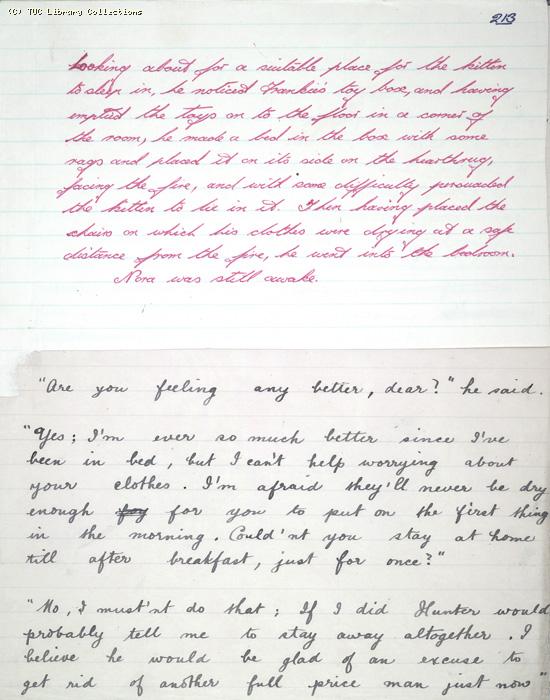 (C) TUC Library Collections
213
Looking about for a suitable place for the kitten
to sleep in, he noticed Frankie's toy box, and having
emptied the toys on to the floor in a corner of
the room, he made a bed in the box with some
rags and placed it on its side on the hearthrug,
facing the fire, and with some difficulty persuaded
the kitten to lie in it. Then having placed the
chairs on which his clothes were drying at a safe
distance from the fire, he went into the bedroom.
Nora was still awake.
"Are you feeling any better, dear?" he said.
"Yes; I'm ever so much better since I've
been in bed, but I can't help worrying about
your clothes. I'm afraid they'll never be dry
enough for you to put on the first thing
in the morning. Could'nt you stay at home
till after breakfast, just for once?"
"No, I must'nt do that; If I did Hunter would
probably tell me to stay away altogether. I
believe he would be glad of an excuse to
get rid of another full price man just now"